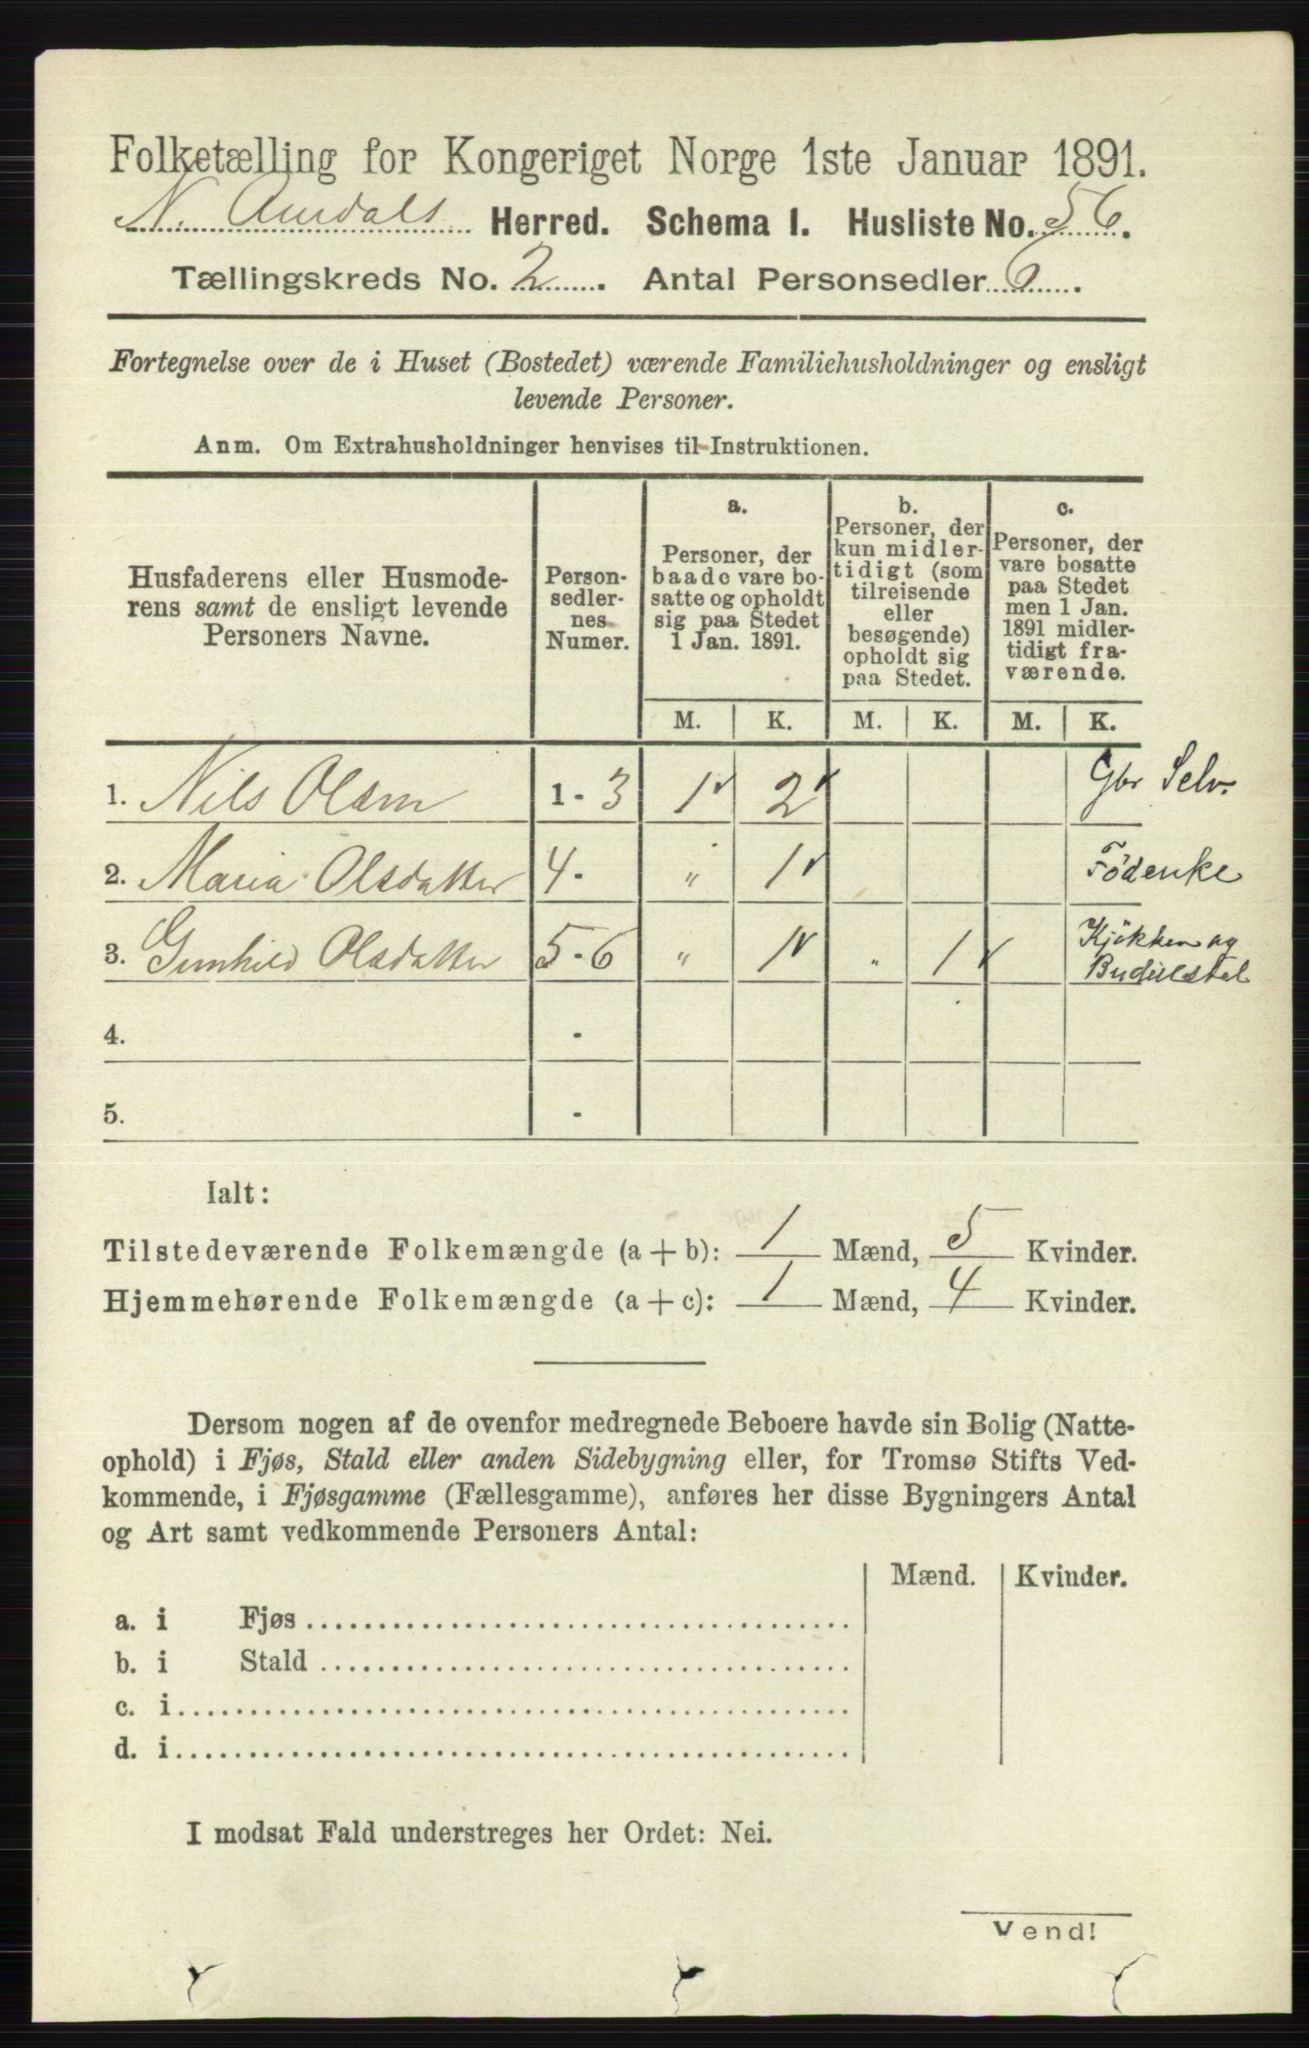 Folketælling for Kongeriget Norge 1ste Januar 1891.
N. Aurdals Herred. Schema I. Husliste No. 56.
Tællingskreds No. 2. Antal Personsedler 6.
Fortegnelse over de i Huset (Bostedet) værende Familiehusholdninger og ensligt
levende Personer.
Anm. Om Extrahusholdninger henvises til Instruktionen.
Husfaderens eller Husmode-
rens samt de ensligt levende
Personers Navne.
Person-
sedler-
nes
Numer.
a.
Personer, der
baade vare bo-
satte og opholdt
sig paa Stedet
1 Jan. 1891.
b.
Personer, der
kun midler-
tidigt (som
tilreisende
eller
besøgende)
opholdt sig
paa Stedet.
c.
Personer, der
vare bosatte
paa Stedet
men 1 Jan.
1891 midler-
tidigt fra-
værende.
M. K. M. K. M. K.
1. Nils Olsen 1 - 3 1 2 Gbr Selv.
2. Maria Olsdatter 4 - " 1 Föderike
3. Gunhild Olsdatter 5 - 6 " 1 " 1 Kjökken og
4. -
5. -
Ialt:
Tilstedeværende Folkemængde (a + b): 1 Mænd, 5 Kvinder.
Hjemmehørende Folkemængde (a + c): 1 Mænd, 4 Kvinder.
Dersom nogen af de ovenfor medregnede Beboere havde sin Bolig (Natte-
ophold) i Fjøs, Stald eller anden Sidebygning eller, for Tromsø Stifts Ved-
kommende, i Fjøsgamme (Fællesgamme), anføres her disse Bygningers Antal
og Art samt vedkommende Personers Antal:
Mænd. Kvinder.
a. i Fjøs
b. i Stald
c. i
d. i
I modsat Fald understreges her Ordet: Nei.
Vend!